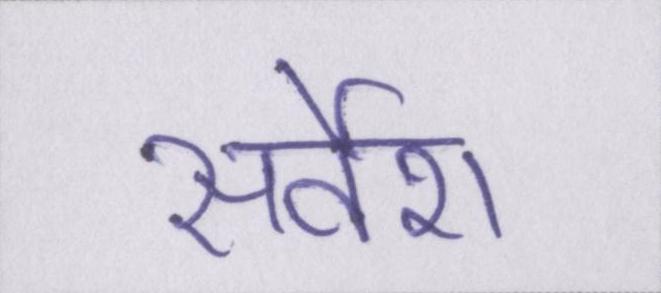 सर्वेश